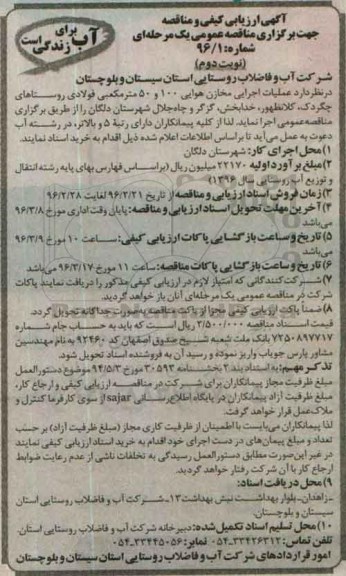 آگهی ارزیابی کیفی و مناقصه
جهت برگزاری مناقصه عمومی یک مرحله‌ای
شماره: ۹۶/۱
(نوبت دوم)
برای آب زندگی است
شرکت آب و فاضلاب روستایی استان سیستان و بلوچستان
در نظر دارد عملیات اجرایی مخازن هوایی ۱۰۰ و ۵۰ مترمکعبی فولادی روستاهای
چگردک، کلانظهور، خدابخش، گزگر و چاه‌جلال شهرستان دلگان را از طریق برگزاری
مناقصه عمومی اجرا نماید. لذا از کلیه پیمانکاران دارای رتبة ۵ و بالاتر، در رشته آب
دعوت به عمل می‌آید تا براساس اطلاعات اعلام شده ذیل اقدام به خرید اسناد نمایند.
۱) محل اجرای کار: شهرستان دلگان
۲) مبلغ برآورد اولیه: ۲۲۱۷۰ میلیون ریال (براساس فهارس بهای پایه رشته انتقال
و توزیع آب روستایی سال ۱۳۹۶)
۳) زمان فروش اسناد ارزیابی و مناقصه از تاریخ ۹۶/۲/۲۱ لغایت ۹۶/۲/۲۸
۴) آخرین مهلت تحویل اسناد ارزیابی و مناقصه: پایان وقت اداری مورخ ۹۶/۳/۸
می‌باشد
۵) تاریخ و ساعت بازگشایی پاکات ارزیابی کیفی: ساعت ۱۰ مورخ ۹۶/۳/۹
می‌باشد
۶) تاریخ و ساعت بازگشایی پاکات مناقصه: ساعت ۱۱ مورخ ۹۶/۳/۱۷ می‌باشد
۷) شرکت‌کنندگانی که امتیاز لازم در ارزیابی کیفی مذکور را دریافت نمایند پاکات
شرکت در مناقصه عمومی یک مرحله‌ای آنان باز خواهد گردید.
۸) ضمناً پاکت ارزیابی کیفی مجزا از پاکت مناقصه به‌صورت جداگانه تحویل گردد.
قیمت اسناد مناقصه ۲/۵۰۰/۰۰۰ ریال است که باید به حساب جام شماره
۷۲۵۰۸۹۷۷۱۷ بانک ملت شعبه شیخ صدوق اصفهان کد ۹۲۴۶۰ به نام مهندسین
مشاور پارس جویاب واریز نموده و رسید آن به فروشنده اسناد تحویل شود.
تذکر مهم: به استناد بند ۲ بخشنامه ۳۰۵۹۳ مورخ ۹۴/۵/۳ موضوع دستورالعمل
مبلغ ظرفیت مجاز پیمانکاران برای شرکت در مناقصه ارزیابی کیفی و ارجاع کار،
مبلغ ظرفیت آزاد پیمانکاران در پایگاه اطلاع رسانی sajar از سوی کارفرما کنترل و
ملاک عمل قرار خواهد گرفت.
لذا پیمانکاران می‌بایست با اطمینان از ظرفیت کاری مجاز (مبلغ ظرفیت آزاد) بر حسب
تعداد و مبلغ پیمان‌های در دست اجرای خود اقدام به خرید اسناد ارزیابی کیفی نمایند
در غیر این صورت مطابق دستورالعمل رسیدگی به تخلفات ناشی از عدم رعایت ضوابط
ارجاع کار با آن شرکت رفتار خواهد گردید.
۹) محل دریافت اسناد:
ـ زاهدان ـ بلوار بهداشت ـ نبش بهداشت ۱۳ ـ شرکت آب و فاضلاب روستایی استان
سیستان و بلوچستان.
۱۰) محل تسلیم اسناد تکمیل شده: دبیرخانه شرکت آب و فاضلاب روستایی استان.
تلفن تماس: ۳۳۴۲۶۳۱۲-۰۵۴ نمابر: ۳۳۴۴۵۰۵۶-۰۵۴
امور قراردادهای شرکت آب و فاضلاب روستایی استان سیستان و بلوچستان